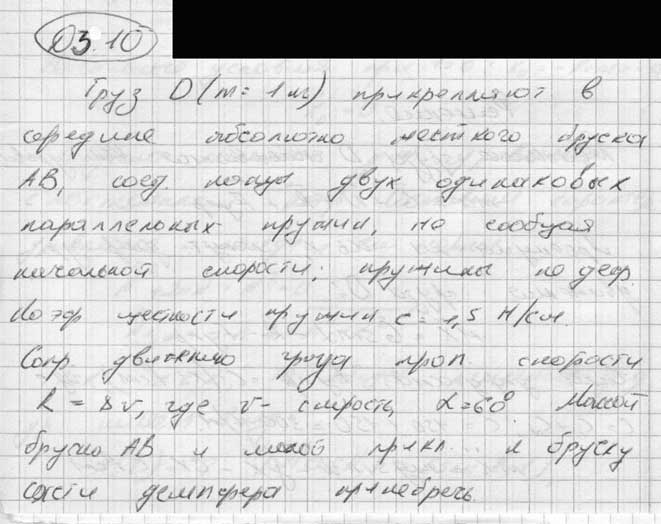 Д3.10
Груз D (m = 1 кг) прикрепляют в
середине абсолютно жесткого бруска
AB, соед концы двух одинаковых
параллельных пружин, не сообщая
начальной скорости; пружины не деф.
Коэф жесткости пружин c = 1,5 Н/см.
Сопр движению груза проп скорости
R = 8v, где v - скорость, α = 60°. Массой
бруска AB и массой прикл... к бруску
части демпфера пренебречь